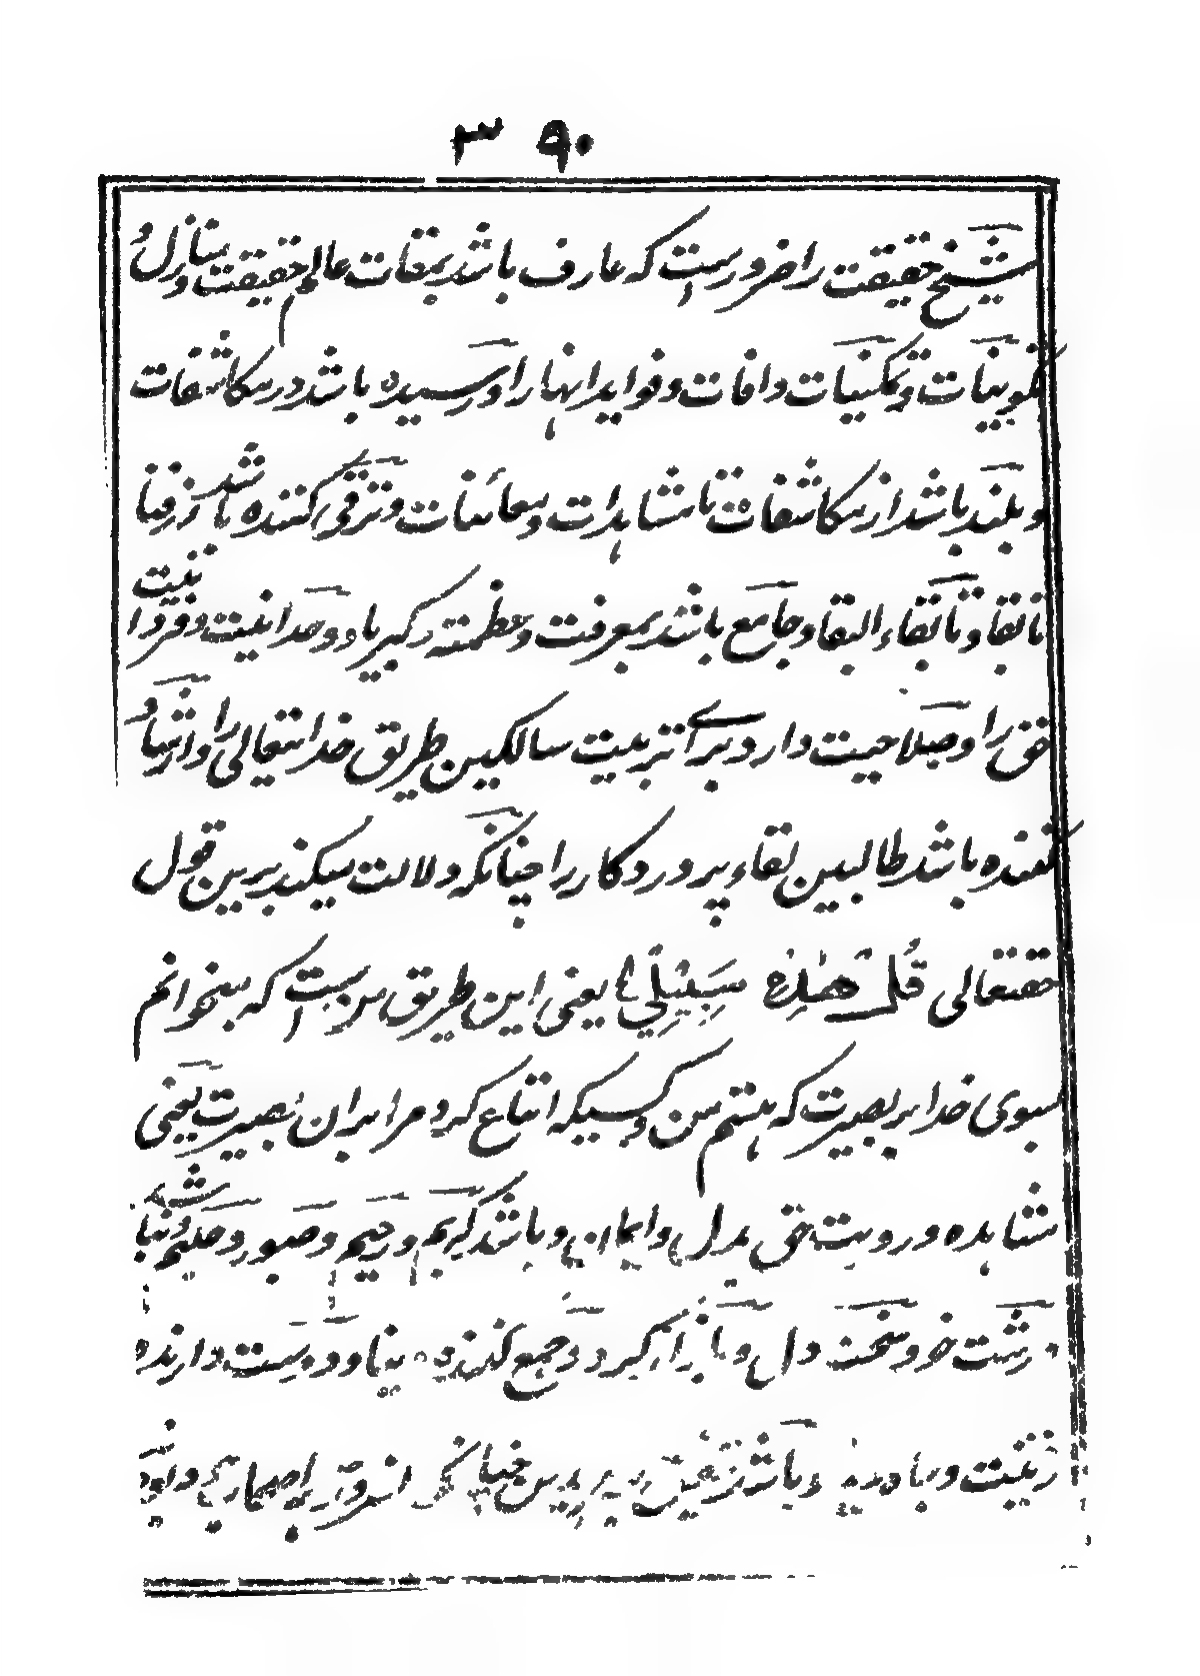 ۳۹۰
شیخ حقیقت را ضرورست که عارف باشد بمقات عالم حقیقت و منازل و
تکوینات و تمکنیات و افات و فواید اینها را و رسیده باشد در مکاشفات
و بلند باشد از مکاشفات تا مشاهدات و معاینات و ترقی کننده باشد از فنا
تا بقا و تا بقاء البقا و جامع باشد بمعرفت و عظمته و کبریا و وحدانیت و فردانیت
حق را و صلاحیت دارد برای تربیت سالکین طریق خدا تعالی را و ارشاد
کننده باشد طالبین لقاء پروردکار را چنانکه دلالت میکند برین قول
حقتعالی قُلْ هٰذِهٖ سَبِیْلِیْ یعنی این طریق من ست که میخوانم
بسوی خدا بر بصیرت که هستم من و کسیکه اتباع کرد مرا بران بصیرت یعنی
مشاهده و رویت حق بدل و ایمان و باشد کریم و رحیم و صبور و حلیم و نباشد
درشت خو و سخت دل و باز کیرد و جمع کننده دنیا و دوست دارنده
زینت و باشد